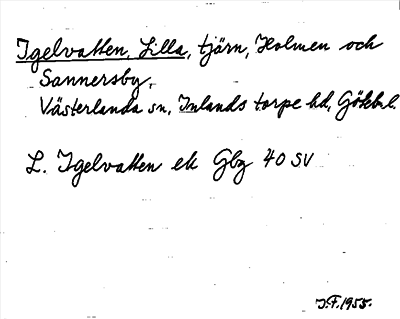 Igelvatten, Lilla, tjärn, Holmen och
Sannersby,
Västerlanda sn, Inlands torpe hd, Götebl.
L. Igelvatten ek Gbg 40 SV
J.F. 1955.